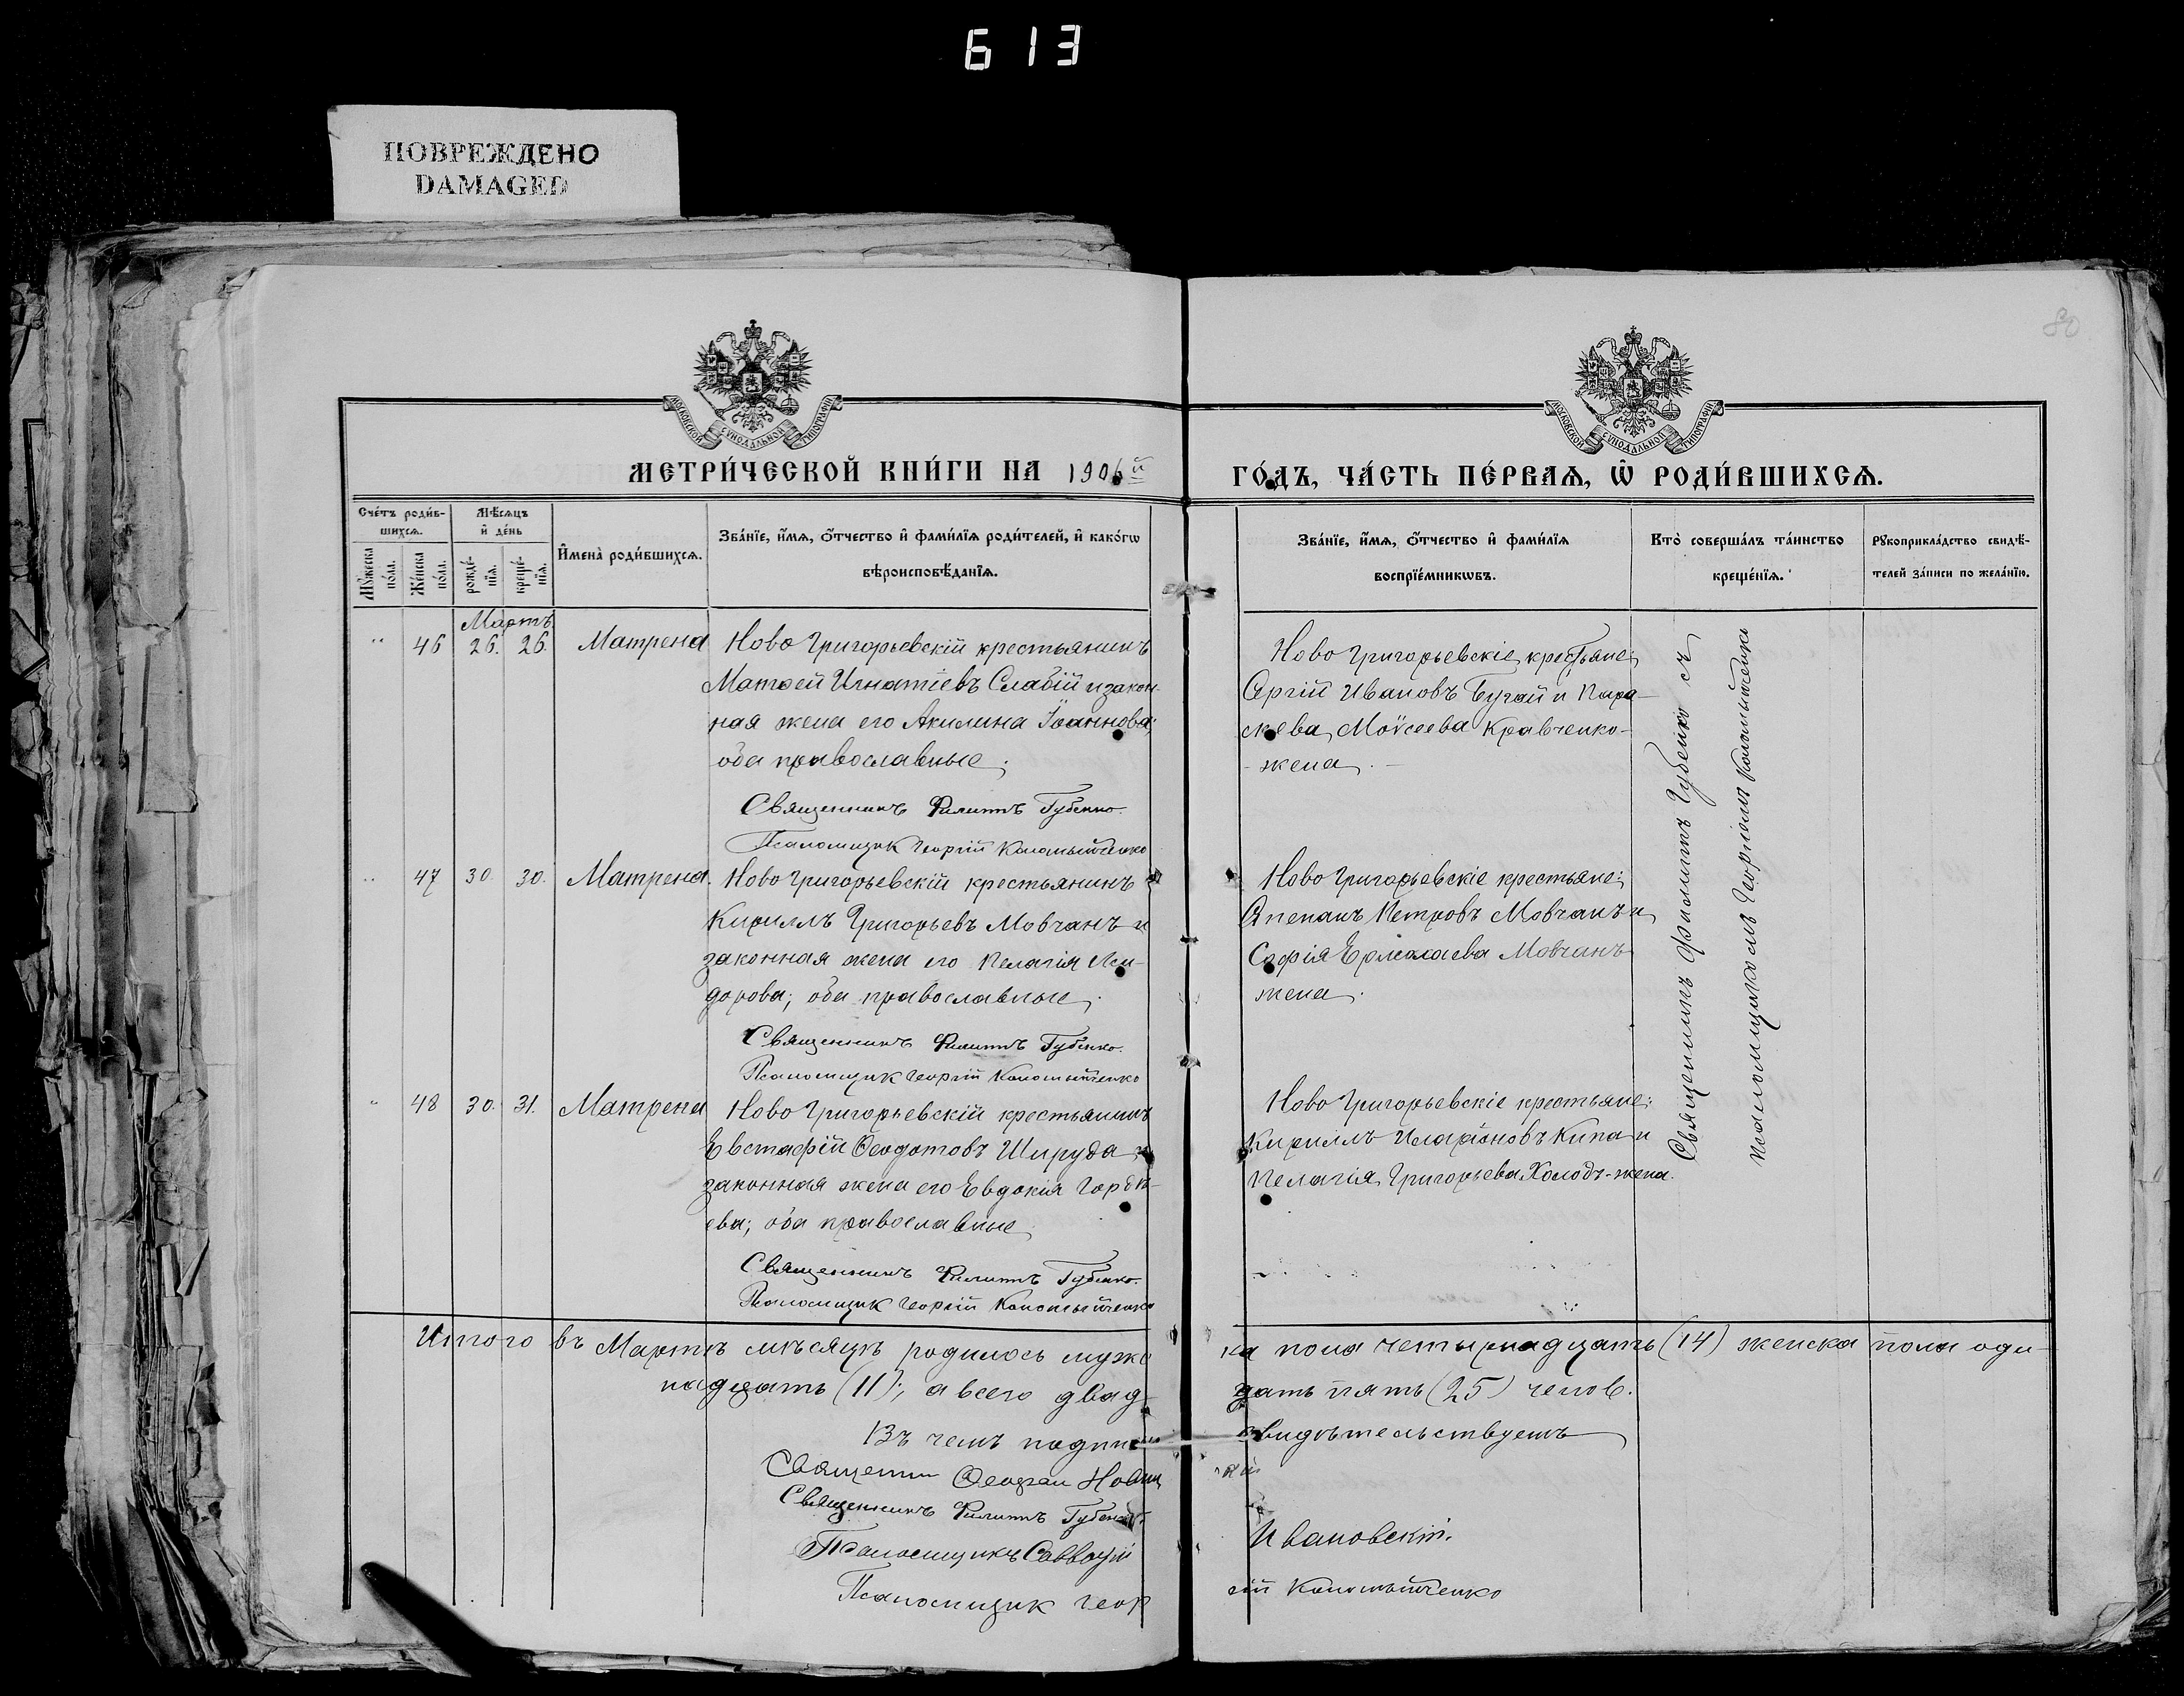 613
ПОВРЕЖДЕНО
DAMAGED
80
МОСКОВСКОЙ СУНОДАЛЬНОЙ ТИПОГРАФІИ
МОСКОВСКОЙ СУНОДАЛЬНОЙ ТИПОГРАФІИ
МЕТРИ́ЧЕСКОЙ КНИ́ГИ НА 1906й
ГО́ДЪ, ЧА́СТЬ ПЕ́РВАѦ, Ѡ҆ РОДИ́ВШИХСѦ.
Сче́тъ роди́в-
шихсѧ.
Мꙋ́жеска по́ла.
Же́нска по́ла.
Мѣ́сѧцъ и҆ де́нь
рожде́-нїѧ.
креще́-нїѧ.
И҆мена̀ роди́вшихсѧ.
Зва́нїе, и҆́мѧ, ѻ҆́тчество и҆ фами́лїѧ роди́телей, и҆ како́гѡ
вѣроисповѣ́данїѧ.
Зва́нїе, и҆́мѧ, ѻ҆́тчество и҆ фами́лїѧ
воспрїе́мникѡвъ.
Кто̀ соверша́лъ та́инство
креще́нїѧ.
Рꙋкоприкла́дство свидѣ́-
телей за́писи по жела́нїю.
Мартъ
" 46 26. 26. Матрена Ново Григорьевскій крестьянинъ
Матѳей Игнатіевъ Слабій и закон-
ная жена его Акилина Іоаннова;
оба православные;
Священникъ Филиппъ Губенко.
Псаломщик Георгій Коломыйченко
Ново Григорьевскіе крестьяне:
Сергій Ивановъ Бугай и Пара-
скева Моѵсеева Кравченко-
- жена. -
" 47 30. 30. Матрена. Ново Григорьевскій крестьянинъ
Кириллъ Григорьевъ Мовчанъ и
законная жена его Пелагія Иси-
дорова; оба православные;
Священникъ Филиппъ Губенко.
Псаломщик Георгій Коломыйченко
Ново Григорьевскіе крестьяне:
Петровъ Мовчанъ и
Софія Ермолаева Мовчанъ
жена.
" 48 30. 31. Матрена Ново Григорьевскій крестьянинъ
Евстафій Ѳеодотовъ Шируда и
законная жена его Евдокія Гордѣ-
ева; оба православные
Священникъ Филиппъ Губенко.
Псаломщик Георгій Коломыйченко
Ново Григорьевскіе крестьяне:
Кириллъ Иларіоновъ Кипа и
Пелагія Григорьева Холодъ-жена.
Священникъ Филиппъ Губенко съ
псаломщикомъ Георгіемъ Коломыйченко
Итого въ Мартѣ мѣсяцѣ родилось мужс
ка пола четырнадцать (14) женска пола оди-
надцать (11); а всего двад
цать пять (25) челов.
Въ чемъ подпи
свидѣтельствуемъ
Священник Ѳеофан
Священникъ Филиппъ Губенко.
Псаломщикъ Савватій
Ивановскій.
Псаломщик Геор
гій Коломыйченко